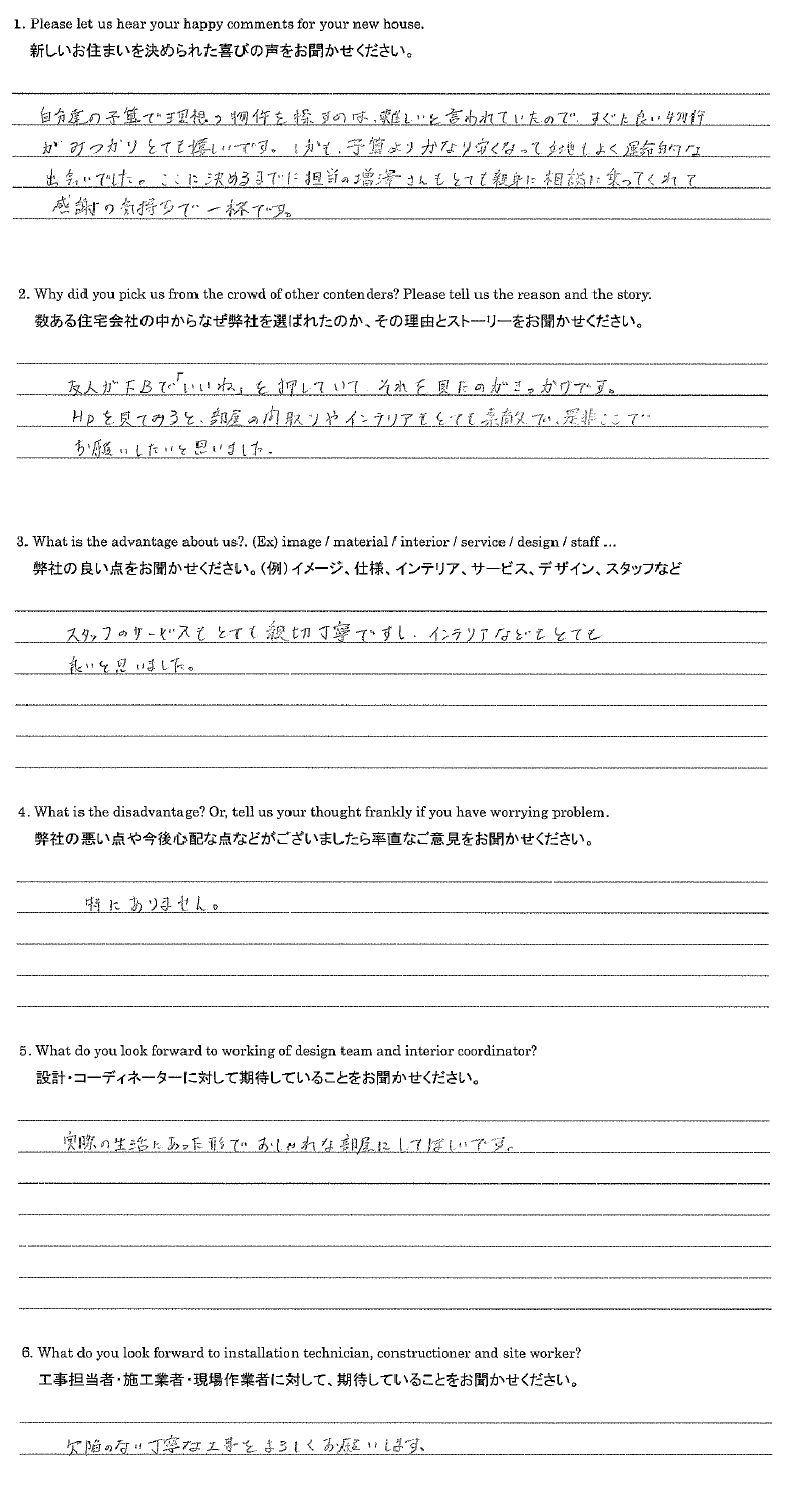 1. Please let us hear your happy comments for your new house.
新しいお住まいを決められた喜びの声をお聞かせください。
自分達の予算で理想の物件を探すのは、難しいと言われていたので、すぐに良い物件
がみつかりとても嬉しいです。しかも、予算よりかなり安くなって立地もよく運命的な
出会いでした。ここに決めるまでに担当の増澤さんもとても親身に相談に乗ってくれて
感謝の気持ちで一杯です。
2. Why did you pick us from the crowd of other contenders? Please tell us the reason and the story.
数ある住宅会社の中からなぜ弊社を選ばれたのか、その理由とストーリーをお聞かせください。
友人がFBで「いいね」を押していて、それを見たのがきっかけです。
HPを見てみると、部屋の間取りやインテリアもとても素敵で、是非ここで
お願いしたいと思いました。
3. What is the advantage about us?. (Ex) image / material / interior / service / design / staff ...
弊社の良い点をお聞かせください。（例）イメージ、仕様、インテリア、サービス、デザイン、スタッフなど
スタッフのサービスもとても親切丁寧ですし、インテリアなどもとても
良いと思いました。
4. What is the disadvantage? Or, tell us your thought frankly if you have worrying problem.
弊社の悪い点や今後心配な点などがございましたら率直なご意見をお聞かせください。
特にありません。
5. What do you look forward to working of design team and interior coordinator?
設計・コーディネーターに対して期待していることをお聞かせください。
実際の生活にあった形でおしゃれな部屋にしてほしいです。
6. What do you look forward to installation technician, constructioner and site worker?
工事担当者・施工業者・現場作業者に対して、期待していることをお聞かせください。
欠陥のない丁寧な工事をよろしくお願いします。